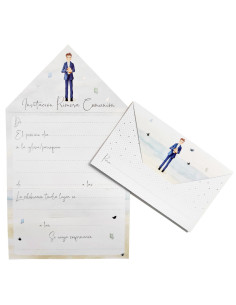 Invitación Primera Comunión
El próximo día
a la iglesia/parroquia
a las
La celebración tendrá lugar en
a las
Se ruega confirmación